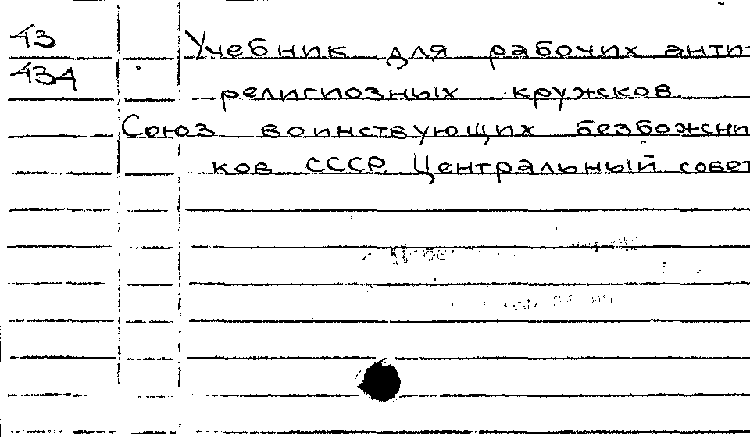 43 Учебник для рабочих анти
434 религиозных кружков.
Союз воинствующих безбожни
ков СССР. Центральный совет